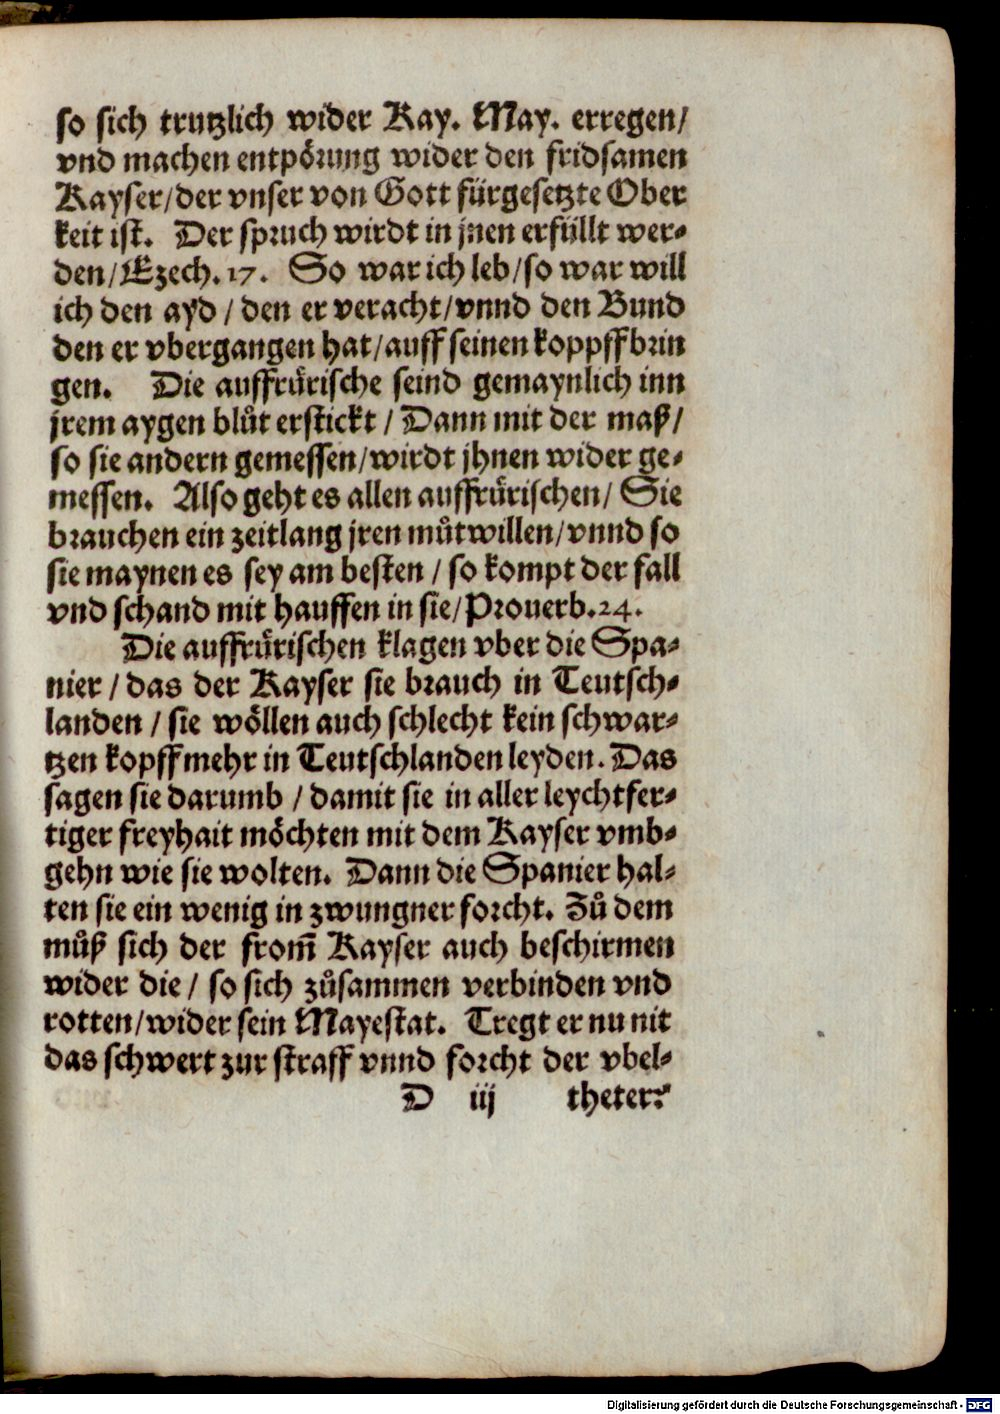 so sich trutzlich wider Kay. May. erregen/
vnd machen entpörung wider den fridsamen
Kayser/der vnser von Gott fürgesetzte Ober
keit ist. Der spruch wirdt in jnen erfüllt wer-
den/Ezech.17. So war ich leb/so war will
ich den ayd / den er veracht/vnnd den Bund
den er vbergangen hat/auff seinen koppff brin
gen. Die auffrůrische seind gemaynlich inn
jrem aygen blůt erstickt / Dann mit der maß/
so sie andern gemessen/wirdt jhnen wider ge-
messen. Also geht es allen auffrůrischen/ Sie
brauchen ein zeitlang jren můtwillen/vnnd so
sie maynen es sey am besten / so kompt der fall
vnd schand mit hauffen in sie/Prouerb.24.
Die auffrůrischen klagen vber die Spa-
nier / das der Kayser sie brauch in Teutsch-
landen / sie wöllen auch schlecht kein schwar-
tzen kopff mehr in Teutschlanden leyden. Das
sagen sie darumb / damit sie in aller leychtfer-
tiger freyhait möchten mit dem Kayser vmb-
gehn wie sie wolten. Dann die Spanier hal-
ten sie ein wenig in zwungner forcht. Zů dem
můß sich der from̃ Kayser auch beschirmen
wider die / so sich zůsammen verbinden vnd
rotten/wider sein Mayestat. Tregt er nu nit
das schwert zur straff vnnd forcht der vbel-
D iij theter?
Digitalisierung gefördert durch die Deutsche Forschungsgemeinschaft - DFG